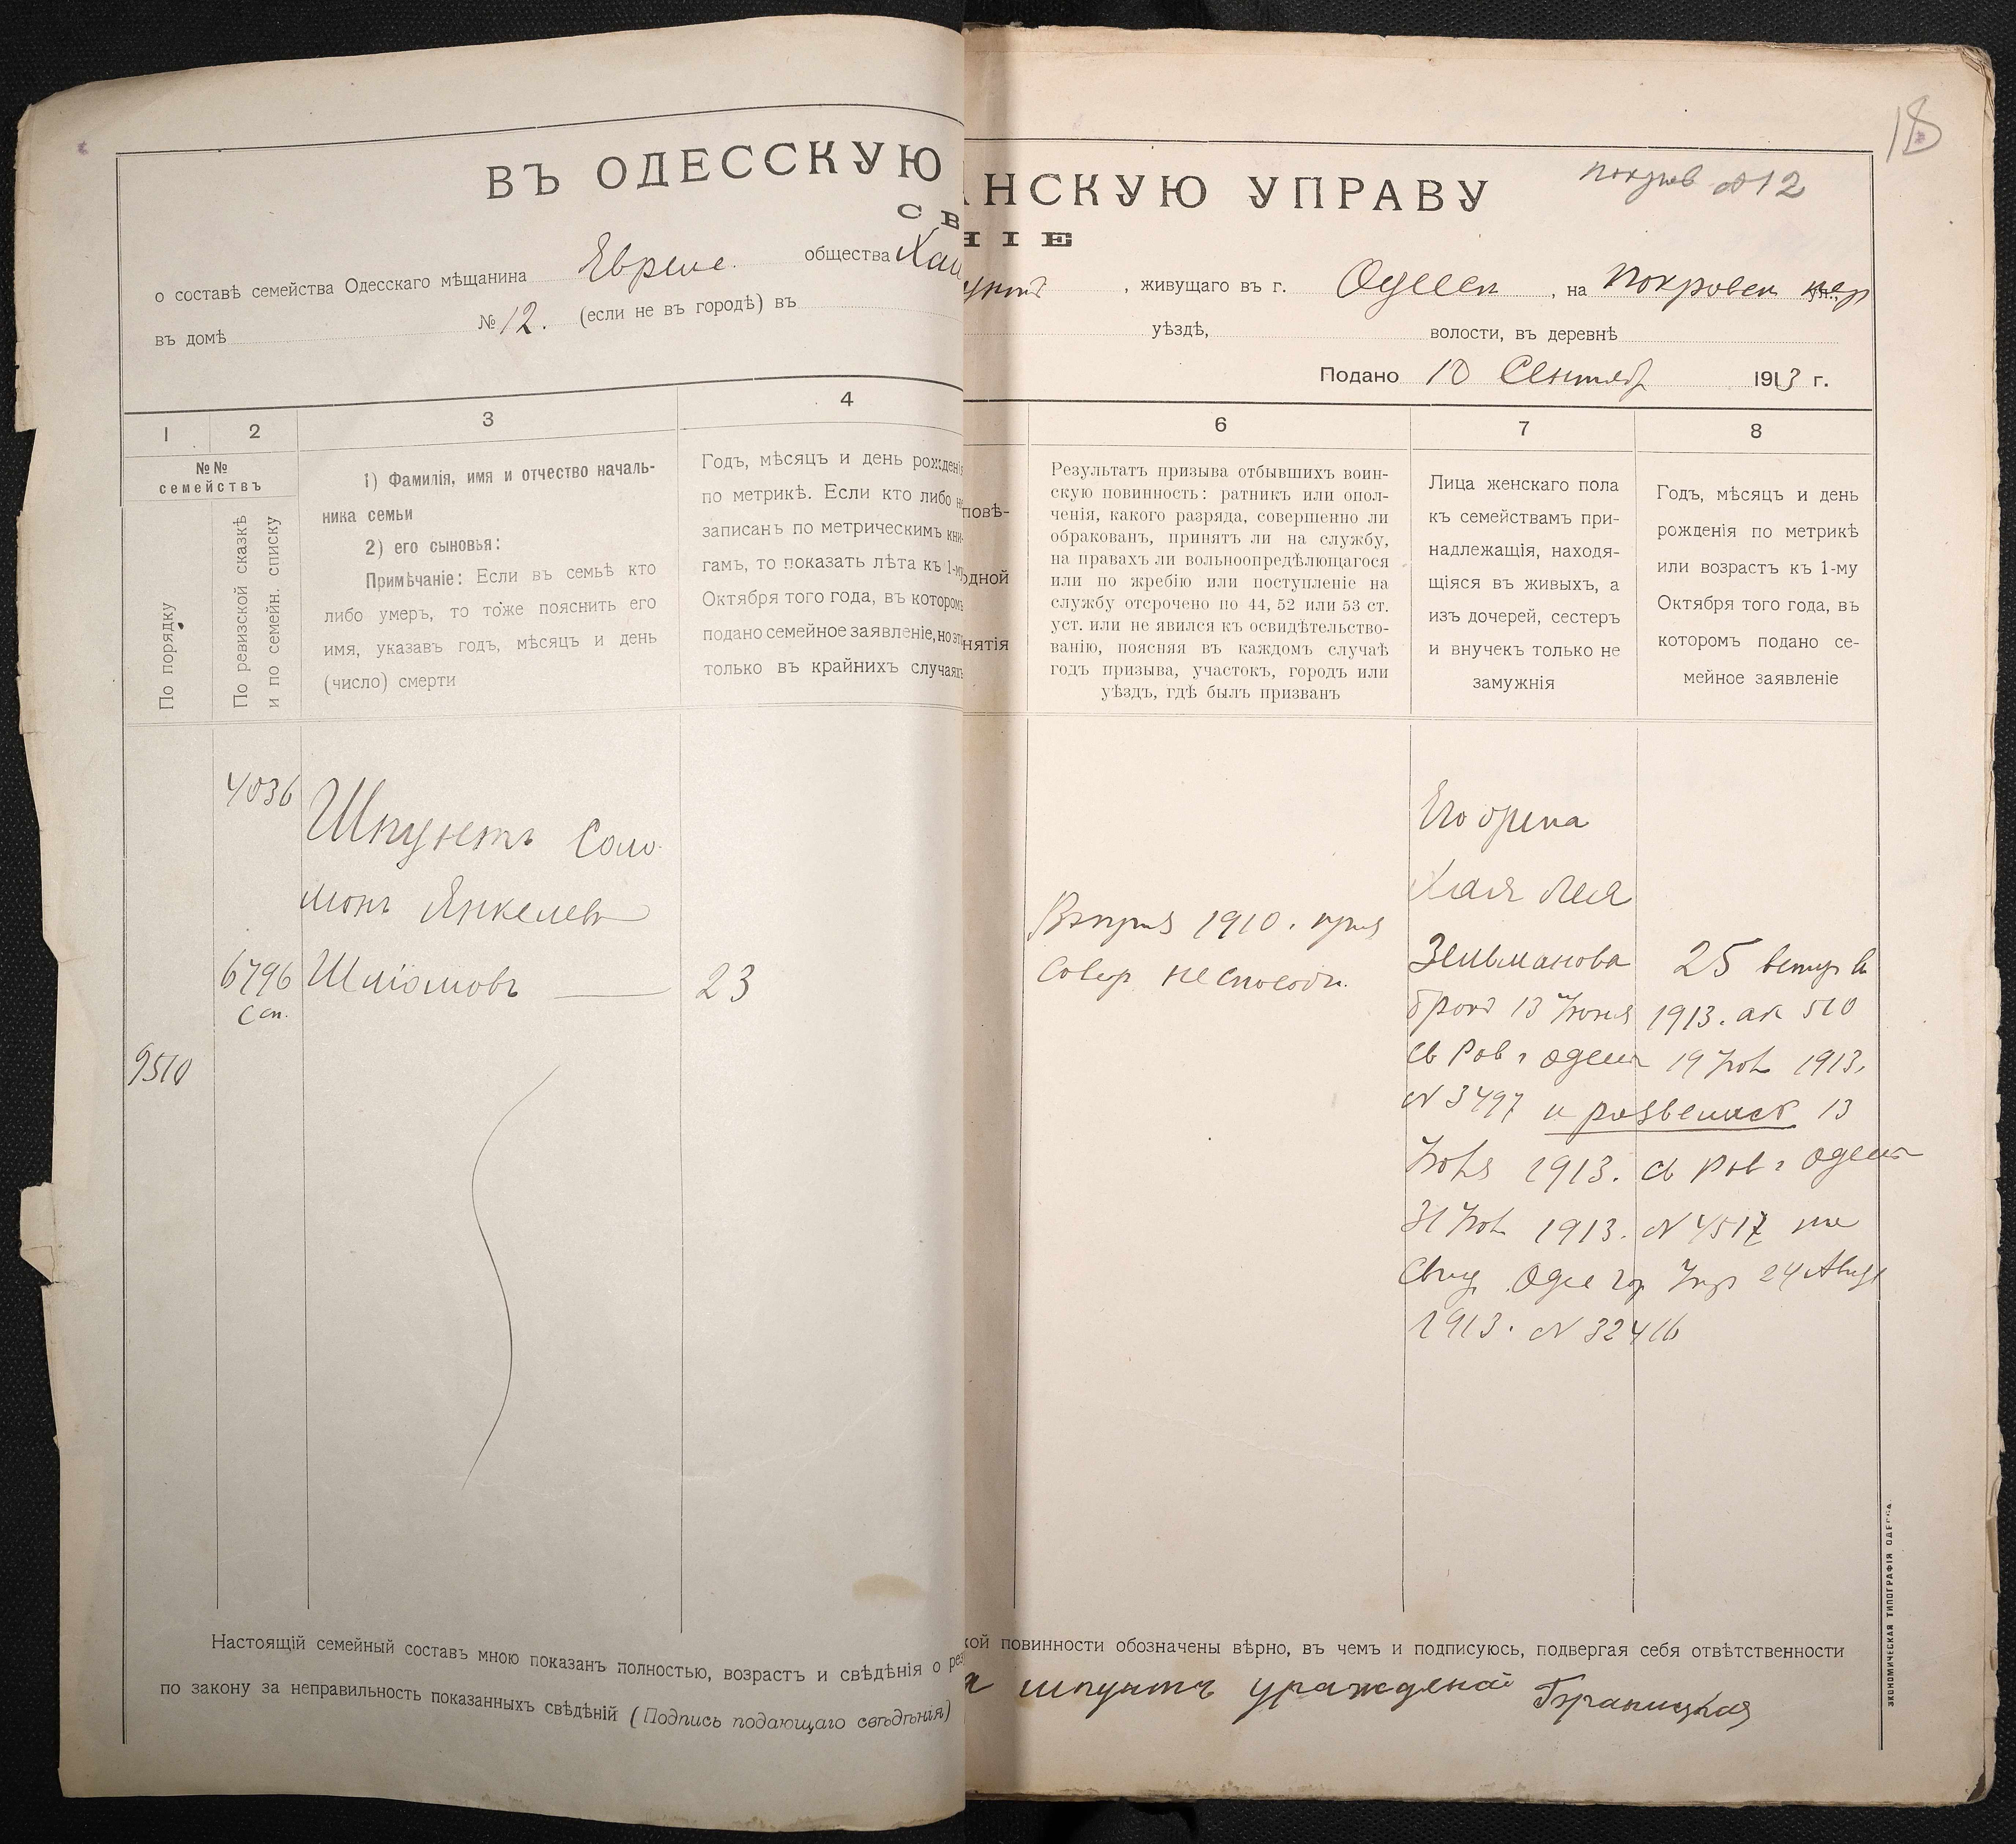 18
ВЪ ОДЕССКУЮ
АНСКУЮ УПРАВУ
№ 12
СВ
НІЕ
о составѣ семейства Одесскаго мѣщанина Еврейс. общества Хаи
, живущаго въ г. Одессѣ, на Покровск пер ул.,
въ домѣ № 12. (если не въ городѣ) въ
уѣздѣ, волости, въ деревнѣ
Подано 10 Сентяб 1913 г.
1
2
3
4
6
7
8
№№ семействъ
По порядку
По ревизской сказкѣ
и по семейн. списку
1) Фамилія, имя и отчество началь-
ника семьи
2) его сыновья:
Примѣчаніе: Если въ семьѣ кто
либо умеръ, то тоже пояснить его
имя, указавъ годъ, мѣсяцъ и день
(число) смерти
Годъ, мѣсяцъ и день рожденія
по метрикѣ. Если кто либо не
записанъ по метрическимъ кни-
гамъ, то показать лѣта къ 1-му
Октября того года, въ которомъ
подано семейное заявленіе, но это
только въ крайнихъ случаяхъ
повѣ-
одной
нятія
Результатъ призыва отбывшихъ воин-
скую повинность: ратникъ или опол-
ченія, какого разряда, совершенно ли
обракованъ, принятъ ли на службу,
на правахъ ли вольноопредѣлющагося
или по жребію или поступленіе на
службу отсрочено по 44, 52 или 53 ст.
уст. или не явился къ освидѣтельство-
ванію, поясняя въ каждомъ случаѣ
годъ призыва, участокъ, городъ или
уѣздъ, гдѣ былъ призванъ
Лица женскаго пола
къ семействамъ при-
надлежащія, находя-
щіяся въ живыхъ, а
изъ дочерей, сестеръ
и внучекъ только не
замужнія
Годъ, мѣсяцъ и день
рожденія по метрикѣ
или возрастъ къ 1-му
Октября того года, въ
которомъ подано се-
мейное заявленіе
4036
Шпунтъ Соло-
монъ Янкелев
6796 Шліомовъ — 23
С сп.
9510
1910. приз
совер неспособн.
Его
Хая Лея
Зельманова 25 вступ въ
брак 13 Іюня 1913. ак 510
св Рав г Одессы 19 Іюл 1913.
№ 3497 и развелись 13
Іюля 1913. св Рав г Одессы
31 Іюл 1913. № 4517
свид. Одес гор Упр 24 Авгус
1913. № 32416
Настоящій семейный составъ мною показанъ полностью, возрастъ и свѣдѣнія о рез
кой повинности обозначены вѣрно, въ чемъ и подписуюсь, подвергая себя отвѣтственности
по закону за неправильность показанныхъ свѣдѣній (Подпись подающаго свѣдѣнія)
шпунтъ ураждена
ЭКОНОМИЧЕСКАЯ ТИПОГРАФІЯ ОДЕССА.